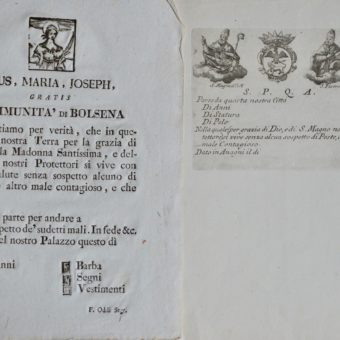 US, MARIA, JOSEPH,
GRATIS
MUNITA' DI BOLSENA
tiamo per verità, che in que-
nostra Terra per la grazia di
la Madonna Santissima, e del-
nostri Protettori si vive con
lute senza sospetto alcuno di
altro male contagioso, e che
parte per andare a
petto de' sudetti mali. In fede &c.
el nostro Palazzo questo dì
nni
Barba
Segni
Vestimenti
F. Oddi Segr.
S. P. Q. A.
Parte da questa nostra Città
Di Anni
Di Statura
Di Pelo
Nella quale per gratia di Dio, e di S. Magno no
tettore si vive senza alcun sospetto di Peste,
male Contagioso.
Dato in Anagni il dì